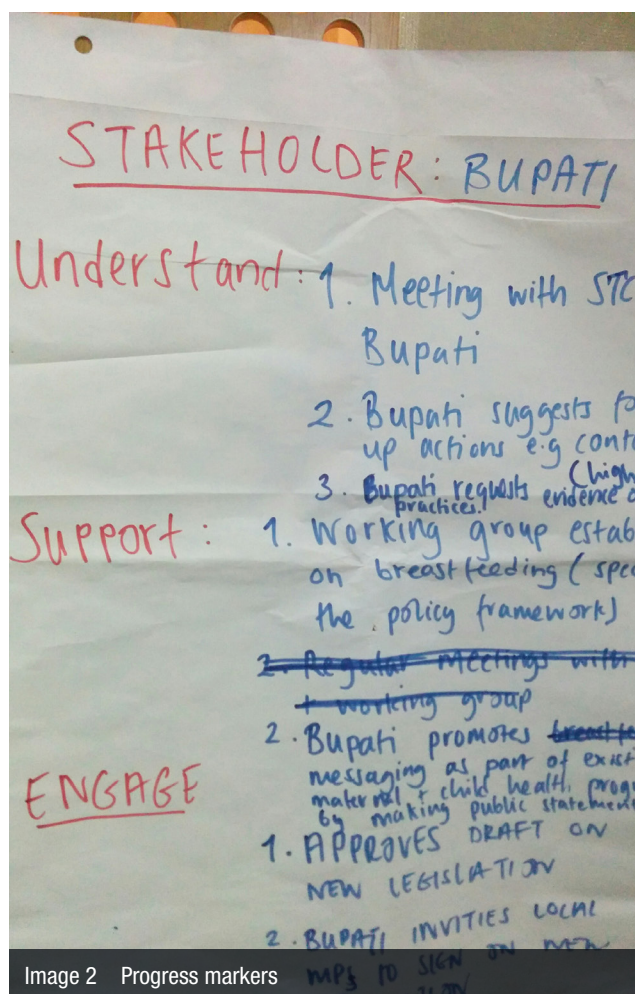 STAKEHOLDER: BUPATI
Understand: 1. Meeting with STC
Bupati
2. Bupati suggests fo
up actions e.g conta
(high
3. Bupati requests evidence o
practices!
Support: 1. Working group estab
on breastfeeding (spec
the policy framework)
2. Regular meetings with
+ working group
2. Bupati promotes breastfe
messaging as part of exist
maternal + child health progr
by making public statement
ENGAGE
1. APPROVES DRAFT ON
NEW LEGISLATION
2. BUPATI INVITIES LOCAL
MPs TO SIGN ON NEW
Image 2 Progress markers